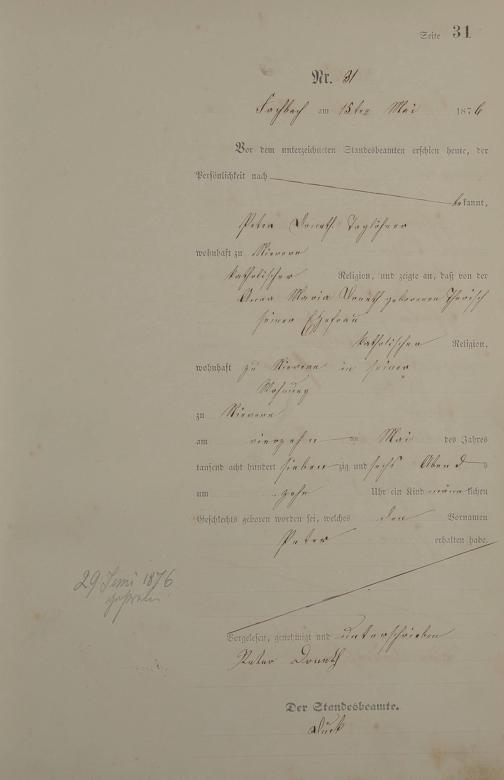 Seite 31
Nr. 31
Fachbach am 15ten Mai 1876
Vor dem unterzeichneten Standesbeamten erschien heute, der
Persönlichkeit nach
bekannt,
Peter Donath Taglöhner
wohnhaft zu Nievern
katholischer Religion, und zeigte an, daß von der
Anna Maria Donath geborenen
seiner Ehefrau
katholischer Religion,
wohnhaft zu Nievern in seiner
Wohnung
zu Nievern
am vierzehnten Mai des Jahres
tausend acht hundert siebenzig und sechs Abends
um zehn Uhr ein Kind männlichen
Geschlechts geboren worden sei, welches den Vornamen
Peter erhalten habe.
29 Juni 1876
Vorgelesen, genehmigt und unterschrieben
Peter Donath
Der Standesbeamte.